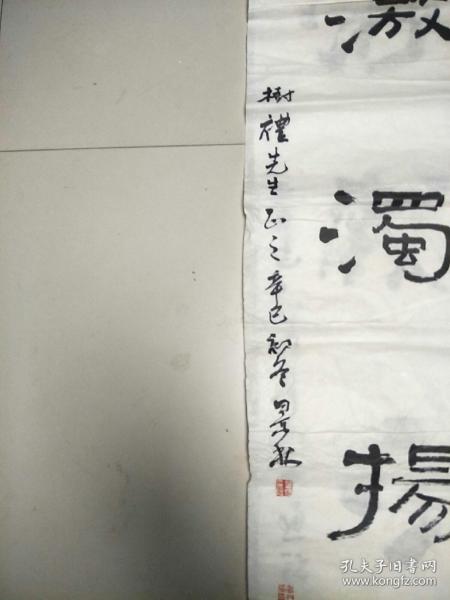 激
濁
揚
樹禮先生正之辛巳初冬景林
孔夫子旧书网
www.kongfz.com